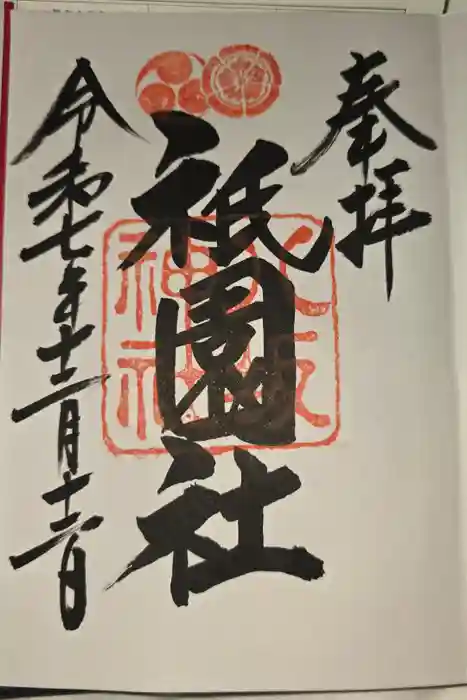 奉拝
祇園社
八坂
神社
令和七年十二月十二日